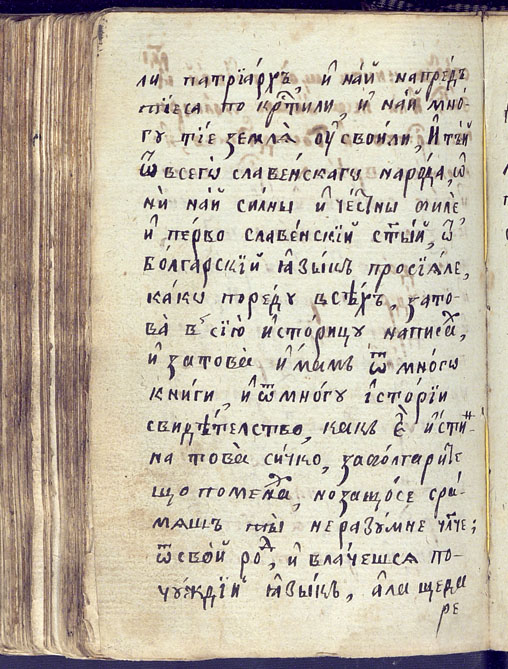 ли патрїархъ, и҆ най напредъ
тїеса покрⷭ҇тили, и҆ най мно́-
гу тїе землѧ̀ оу҆сво́или, И҆ тъй
ѿ всегѡ славе́нскагѡ народа, ѡ҆
нѝ най силны и҆ че́сⷮны биле
и҆ пе́рво славе́нскїй с҃тый, ѿ
Болгарскїй ꙗ҆зы́къ просїѧ́ле,
какѡ поредꙋ всѣ́хъ, зато-
ва̀ в сїю и҆сторицꙋ написаⷯ,
и҆ затова̀ и҆мамъ ѿ мно́гѡ
книги, и҆ ѿ мно́гꙋ і҆сто́рїи
свидѣ́телство, какъ є҆ и҆сти-
на това̀ си́чко, за болгариⷮе
що поменаⷯ, но защо́ се сра́-
мѧшъ ты̀ неразꙋ́мне ч҃лче;
ѿ свой роⷣ, и҆ влачешсѧ по-
чꙋ́ждїй ꙗ҆зы́къ, а҆ла щеда
ре